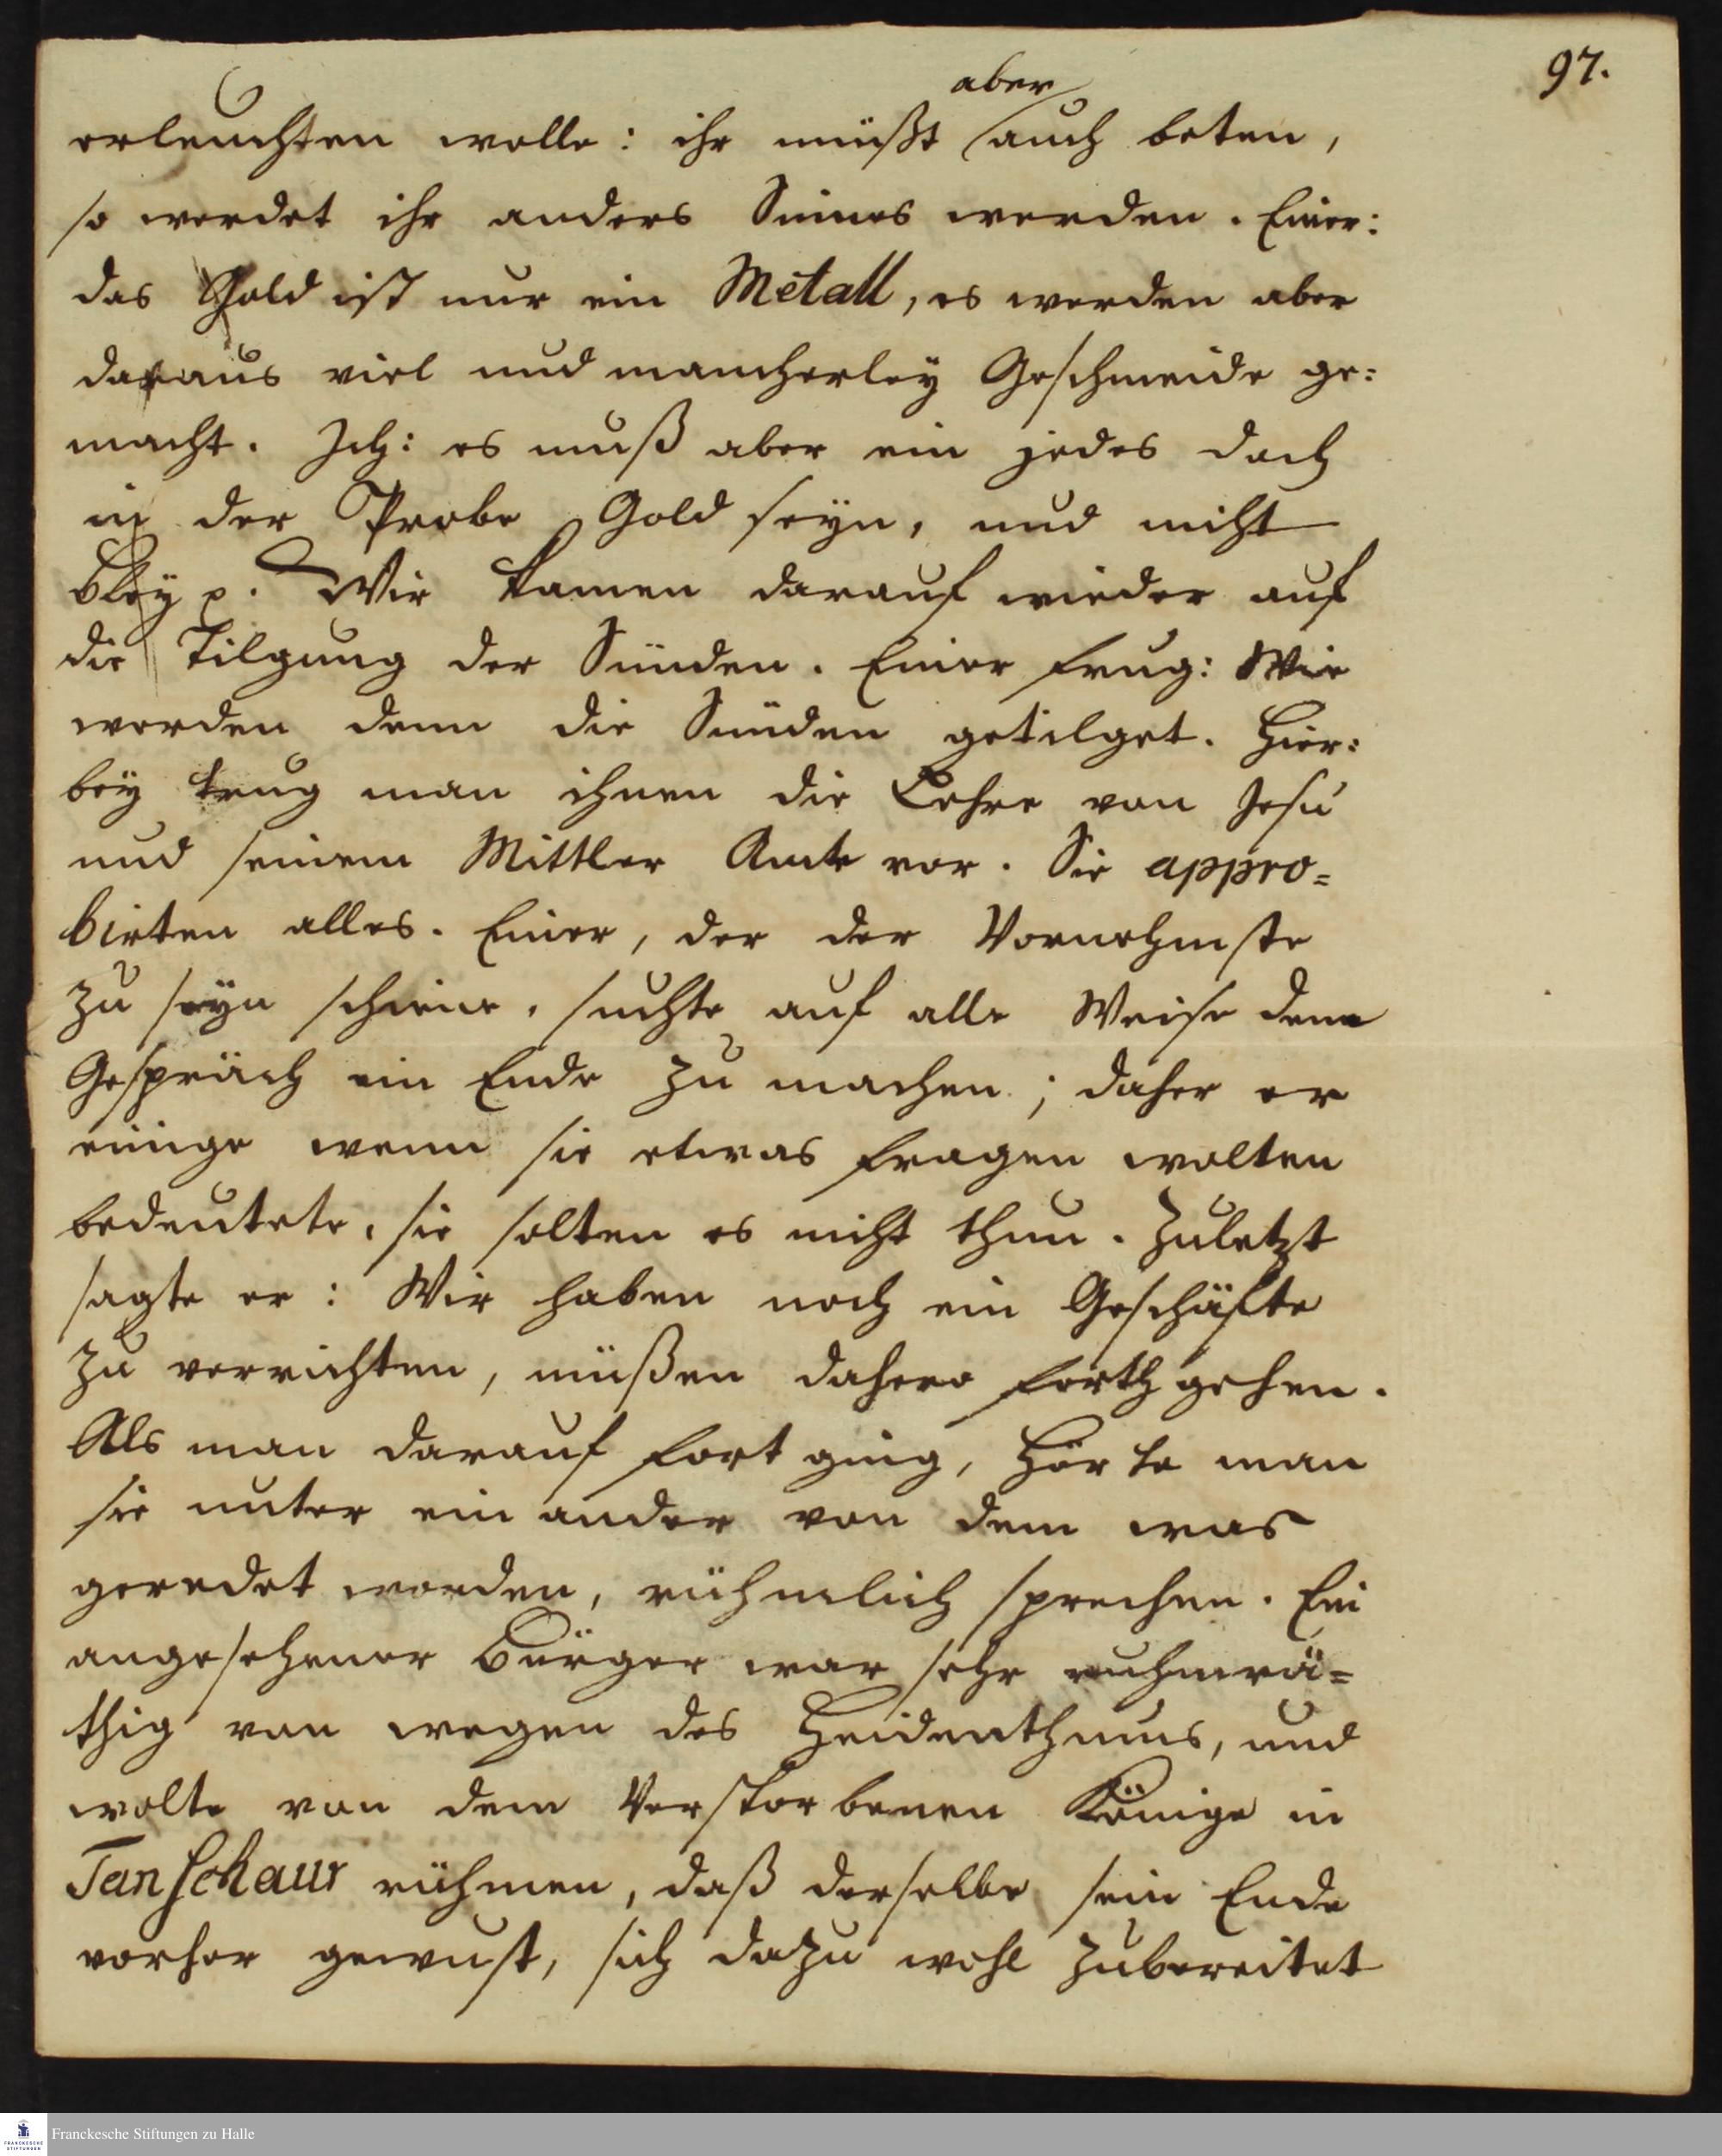 97.
aber
erleuchten wolle: ihr müßt auch beten,
so werdet ihr anders Sinnes werden. Einer:
das Gold ist nur ein Metall, es werden aber
daraus viel und mancherley Geschmeide ge:
macht. Ich: es muß aber ein jedes doch
in der Probe Gold seyn, und nicht
Bley p. Wir kamen darauf wieder auf
die Tilgung der Sünden. Einer frug: Wie
werden denn die Sünden getilget. Hier:
bey trug man ihnen die Lehre von Jesu
und seinem Mittler Amte vor. Sie appro=
birten alles. Einer, der der Vornehmste
zu seyn schiene, suchte auf alle Weise dem
Gespräch ein Ende zu machen; daher er
einige wenn sie etwas fragen wolten
bedeutete, sie solten es nicht thun. Zuletzt
sagte er: Wir haben noch ein Geschäfte
zu verrichten, müßen dahero forth gehen.
Als man darauf fort ging, hörte man
sie unter ein ander von dem was
geredet worden, rühmlich sprechen. Ein
angesehener Bürger war sehr ruhmrä=
thig von wegen des Heidenthums, und
wolte von dem Verstorbenen Könige in
Tanschaur rühmen, daß derselbe sein Ende
vorher gewust, sich dazu wohl zubereitet
Franckesche Stiftungen zu Halle